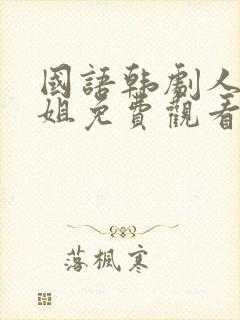 國語韩劇人
姐免費觀看
落楓寒